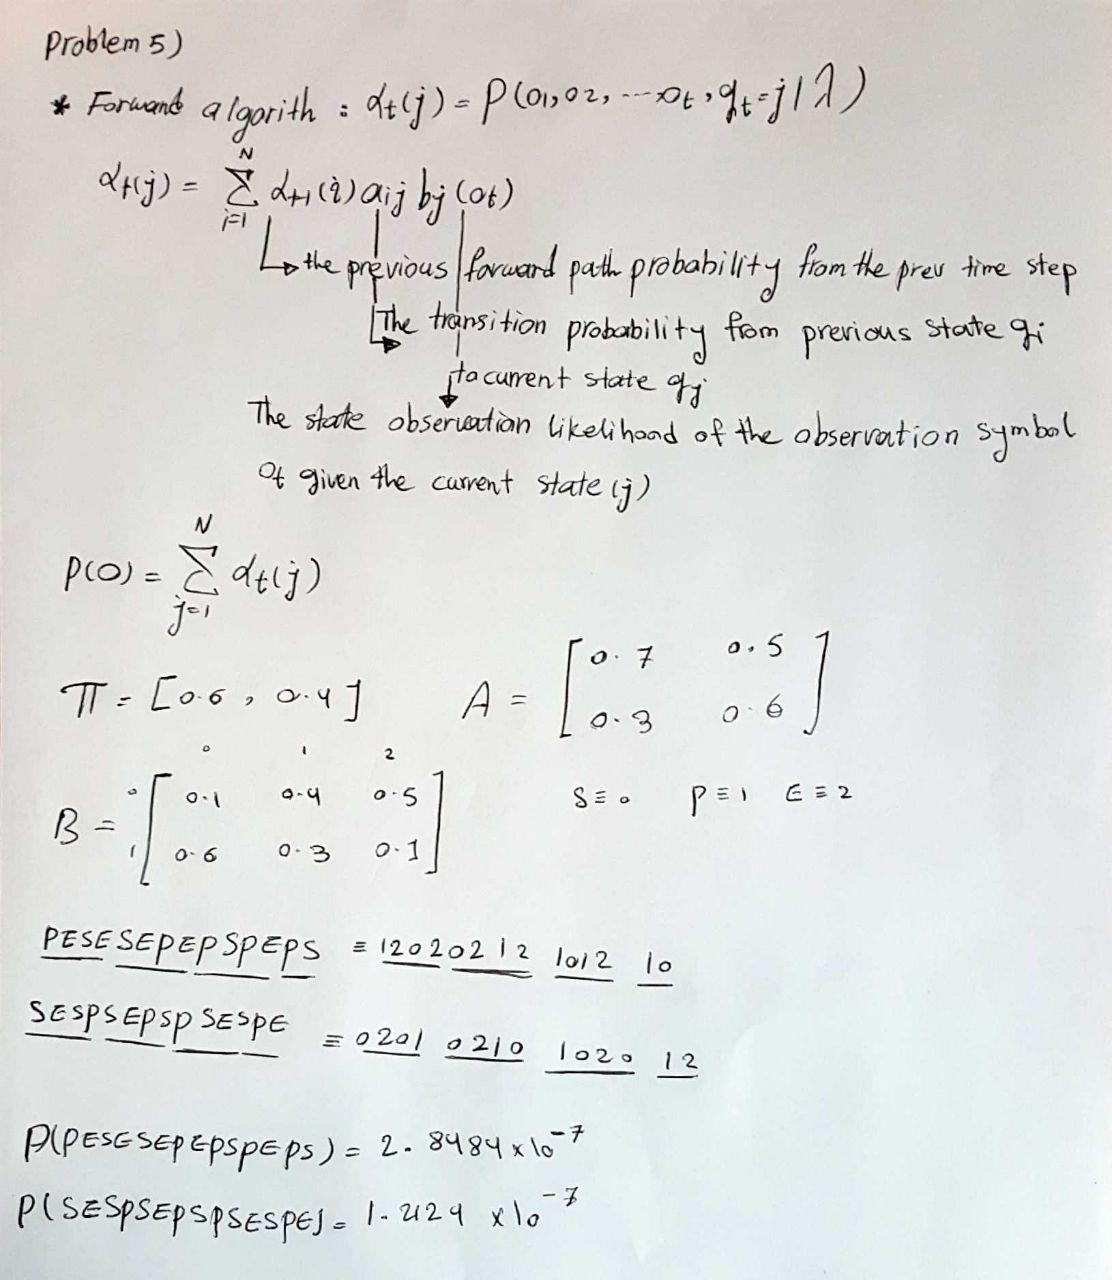 Problem 5)
* Forward algorith : αt(j) = P(o1, o2, ... ot, qt=j | λ)
αt(j) = N Σ i=1 αt-1(i) aij bj (ot)
the previous forward path probability from the prev time step
The transition probability from previous state qi
to current state qj
The state observation likelihood of the observation symbol
Ot given the current state (j)
P(O) = N Σ j=1 αt(j)
π = [0.6, 0.4] A = [0.7 0.5
0.3 0.6]
0 1 2
B = 0 [0.1 0.4 0.5 S ≡ 0 P ≡ 1 E ≡ 2
1 0.6 0.3 0.1]
PESESEPEPSPEPS ≡ 12020212 1012 10
SESPSEPSPSESPE ≡ 0201 0210 1020 12
P(PESESEPEPSPEPS) = 2.8484 x 10^-7
P(SESPSEPSPSESPE) = x 10^-7